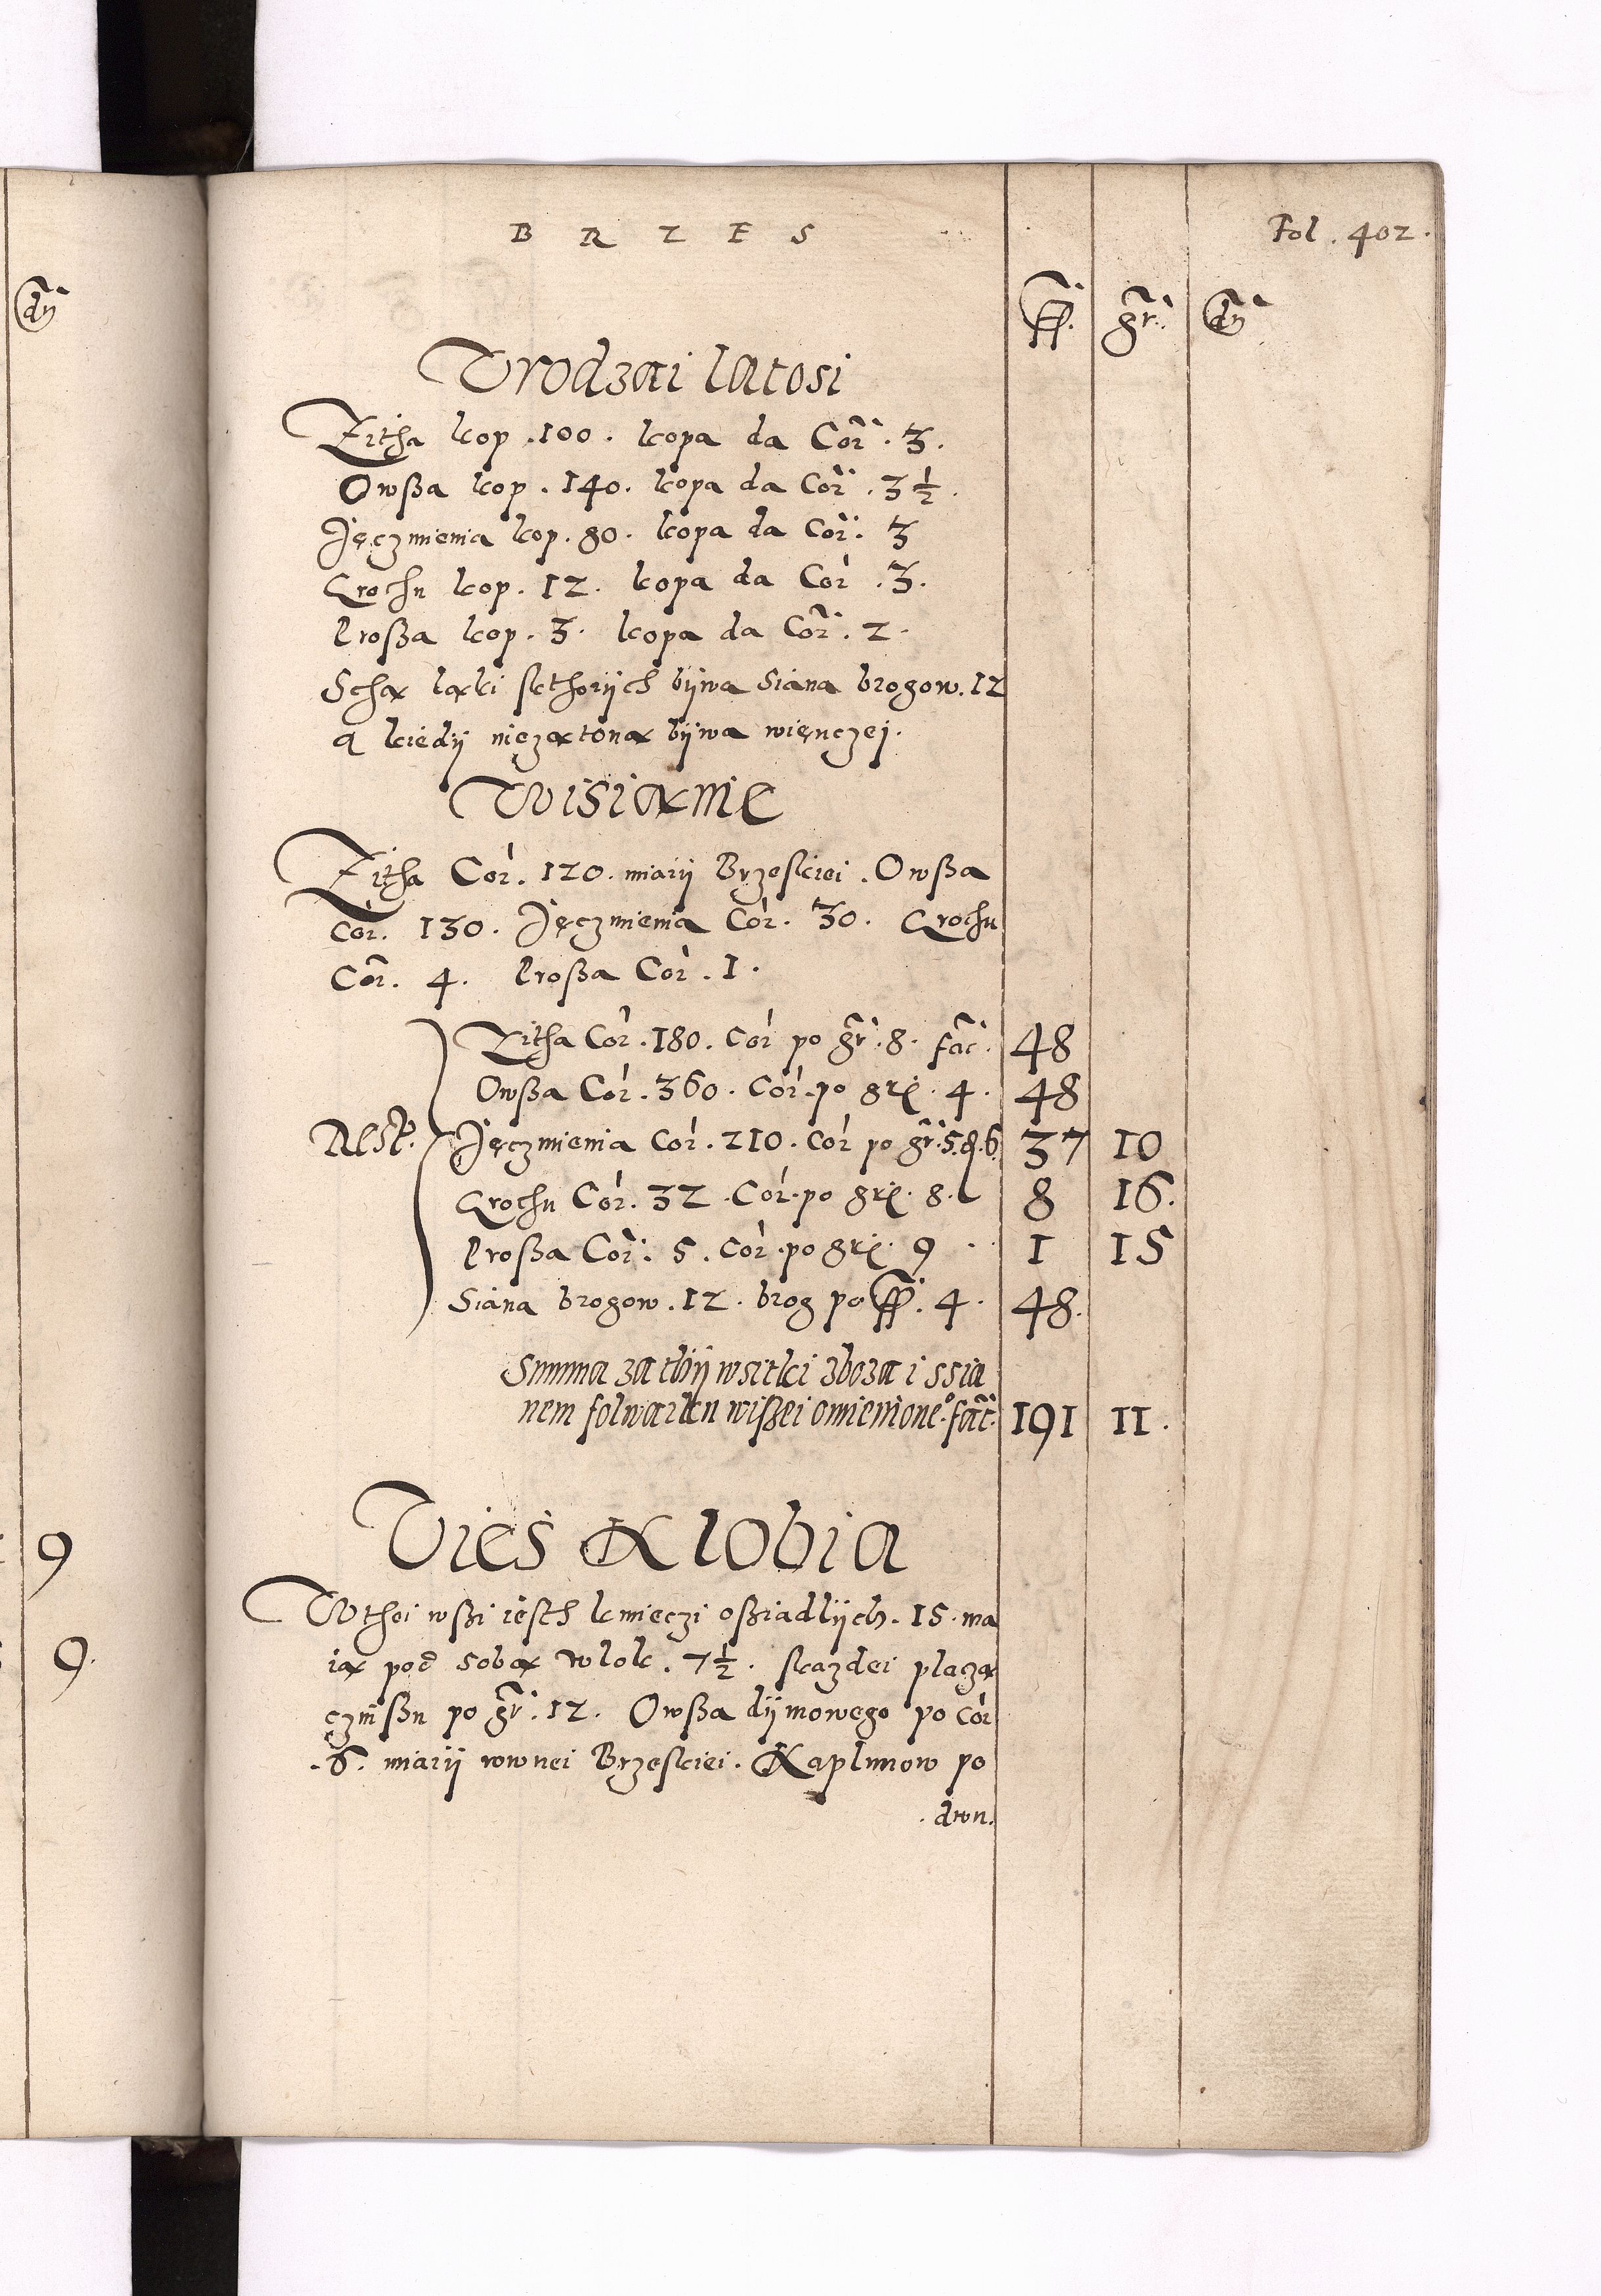 dn̄
9
9.
B R Z E S
Fol. 402.
ff. gr. dn̄
Vrodzai latosi
Zitha kop .100. kopa da Cor .3.
Owßa kop .140. kopa da Cor .3½.
Jęczmienia kop. 80. kopa da Cor. 3
Grochu kop. 12. kopa da Cor .3.
Proßa kop. 3. kopa da Cor. 2.
Schą ląki sktorÿch bÿwa Siana brogow. 12
A kiedÿ niezątoną bÿwa więnczej.
Wisianie
Zitha Cor. 120. miarÿ Brzeskiei. Owßa
Cor. 130. Jęczmienia Cor. 30. Grochu
Cor. 4. Proßa Cor. 1.
Zitha Cor .180. Cor po gr. 8. fac. 48
Owßa Cor. 360. Cor. po grͦ. 4. 48
Rest. Jęczmienia Cor. 210. Cor po gr. 5.d.6. 37 10
Grochu Cor. 32. Cor. po grͦ. 8. 8 16.
Proßa Cor. 5. Cor. po grͦ. 9 1 15
Siana brogow. 12. brog po ff. 4. 48.
Summa za thÿ wsitki zboza i ssia
nem folwarku wißei omienioneº. fac̄t. 191 11.
Vies Klobia
W thei wßi iesth kmieczi oßiadlÿch. 15. ma
ią pod sobą wlok. 7½. skazdei placzą
czinßu po gr. 12. Owßa dÿmowego po cor
.6. miarÿ rownei Brzeskiei. Kaplunow po
.dwu.